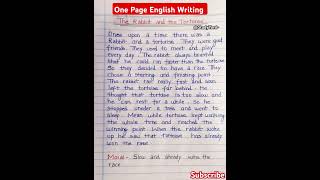 One Page English Writing
The Rabbit and the Tortoise
Once upon a time there was a
Rabbit and a tortoise. They were good
friends. They used to meet and play
every day. The rabbit always boasted
that he could ran faster than the tortoise
So they decided to have a race. They
chose a starting and finishing point.
The rabbit ran really fast and soon
left the tortoise far behind. He
thought that tortoise is too slow and
he can rest for a while. So he
stopped under a tree and went to
sleep. Mean while tortoise kept walking
the whole time and reached the
winning point. When the rabbit woke
up he saw that tortoise has already
won the race.
Moral:- Slow and steady wins the
race
Subscribe